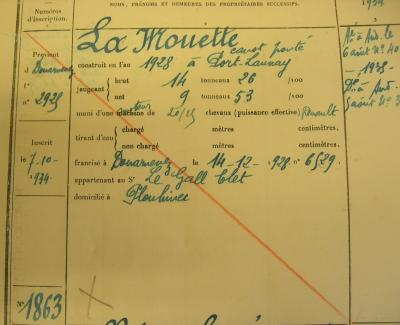 Numéros
d'inscription.
NOMS, PRÉNOMS ET DEMEURES DES PROPRIÉTAIRES SUCCESSIFS.
1934
La Mouette
canot ponté
construit en l'an 1928 à Port-Launay
jaugeant brut 14 tonneaux 26 /100
net 9 tonneaux 53 /100
muni d'une machine de 20/25 chevaux (puissance effective) Renault
moteur
tirant d'eau chargé mètres centimètres.
non chargé mètres centimètres.
francisé à Douarnenez le 14-12-1928 n° 6529
appartenant au Sr Le Gall Clet
domicilié à Plouhinec
Provient
d Douarnenez
f°
n° 2925
Inscrit
le 7-10-
1934
N° 1863
-1935-